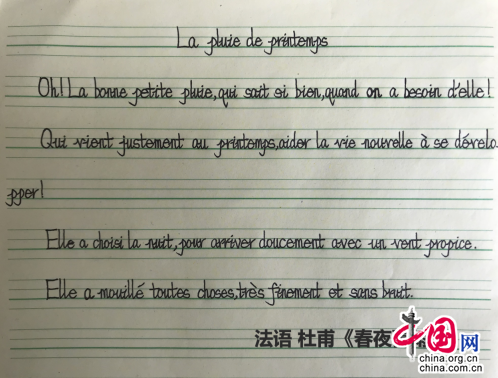 La pluie de printemps
Oh! La bonne petite pluie, qui sait si bien, quand on a besoin d'elle!
Qui vient justement au printemps, aider la vie nouvelle à se dévelo-
pper!
Elle a choisi la nuit, pour arriver doucement avec un vent propice.
Elle a mouillé toutes choses, très finement et sans bruit.
法语 杜甫《春夜
中国网
china.org.cn
china.com.cn